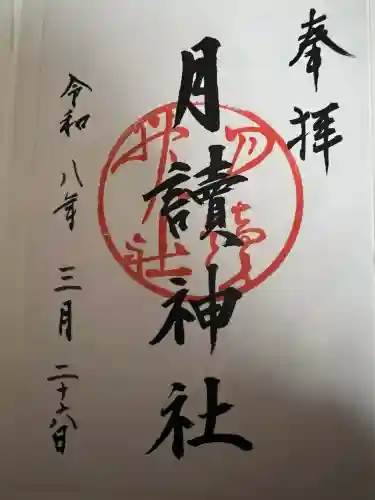 奉拝
月讀神社
令和八年三月二十八日